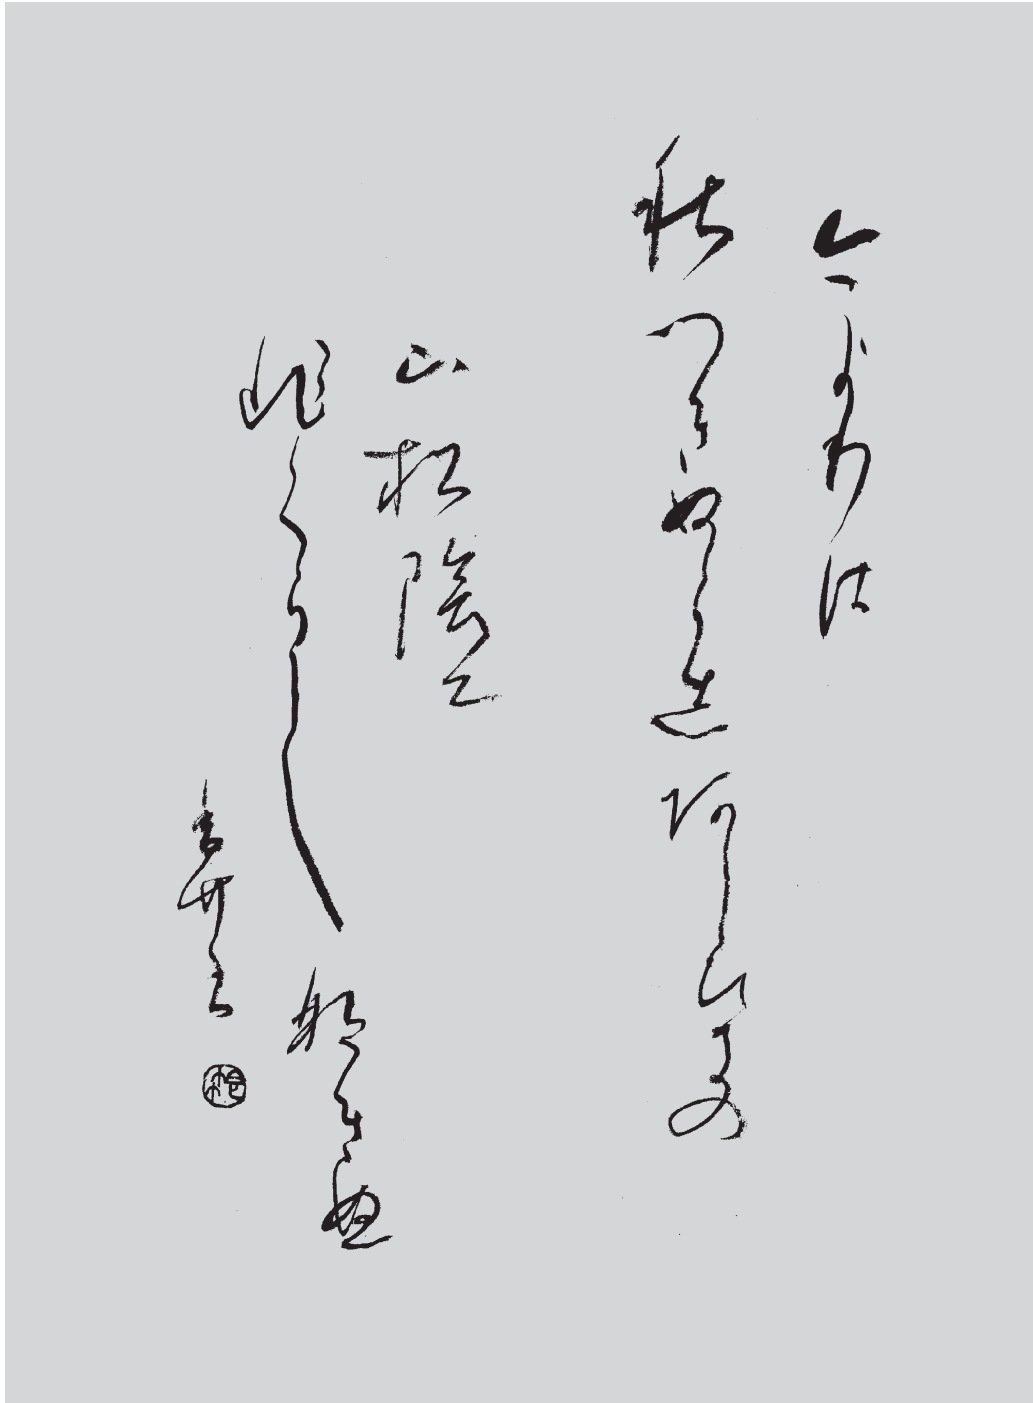 今よりは
秋つきぬらし阿しひきの
山松陰に
悲くらし那きぬ